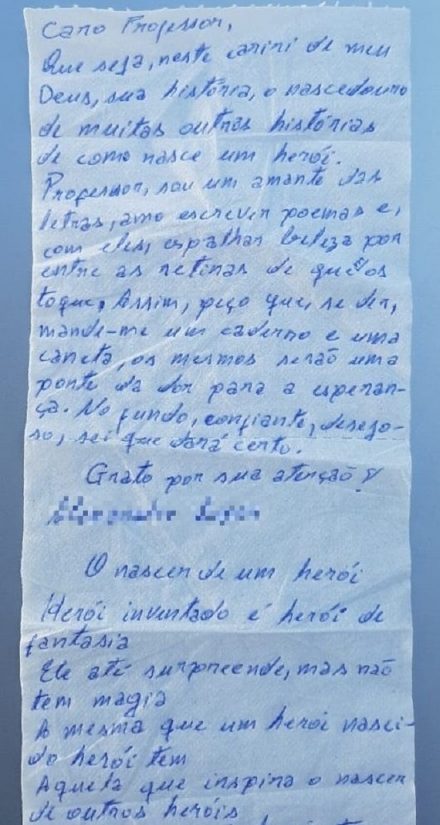 Caro Professor,
Que seja, neste carini de meu
Deus, sua história, o nascedouro
de muitas outras histórias
de como nasce um herói.
Professor, sou um amante das
letras, amo escrever poemas e,
com eles, espalhar beleza por
entre as retinas de quem os
toque. Assim, peço que, se der,
mande-me um caderno e uma
caneta, os mesmos serão uma
ponte da dor para a esperan-
ça. No fundo, confiante, desejo-
so, sei que dará certo.
Grato por sua atenção!
O nascer de um herói
Herói inventado é herói de
fantasia
Ele até surpreende, mas não
tem magia
A mesma que um herói nasci-
do herói tem
Aquela que inspira o nascer
de outros heróis